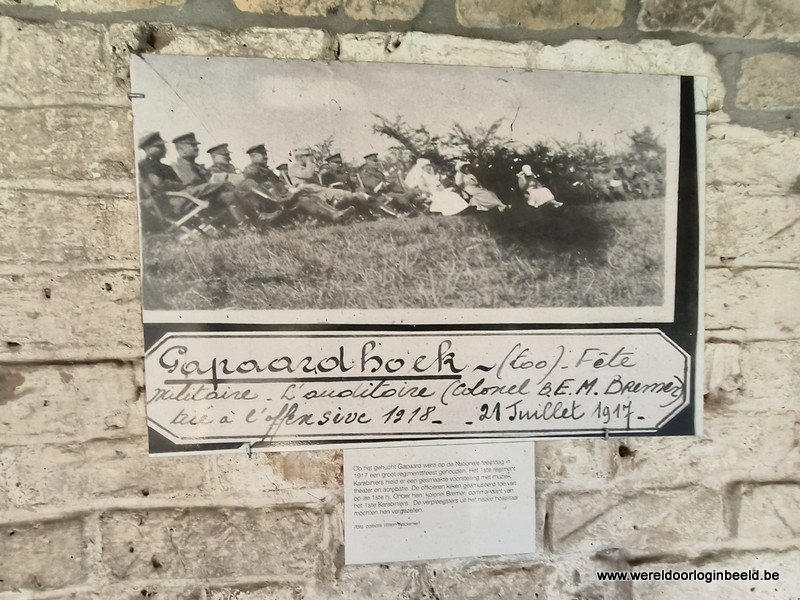 Gapaardhoek - (too) - Fête
militaire - L'auditoire (Colonel B.E.M. Bremer)
tué à l'offensive 1918 - - 21 Juillet 1917 -
Op het gehucht Gapaard werd op de Nationale feestdag in
1917 een groot regimentsfeest gehouden. Het 1ste regiment
Karabiniers hield er een gesmaakte voorstelling met muziek,
theater en acrobatie. De officieren kijken geamuseerd toe van
op de 1ste rij. Onder hen, kolonel Bremer, commandant van
het 1ste Karabiniers. De verpleegsters uit het nabije hospitaal
mochten hen vergezellen.
www.wereldoorloginbeeld.be